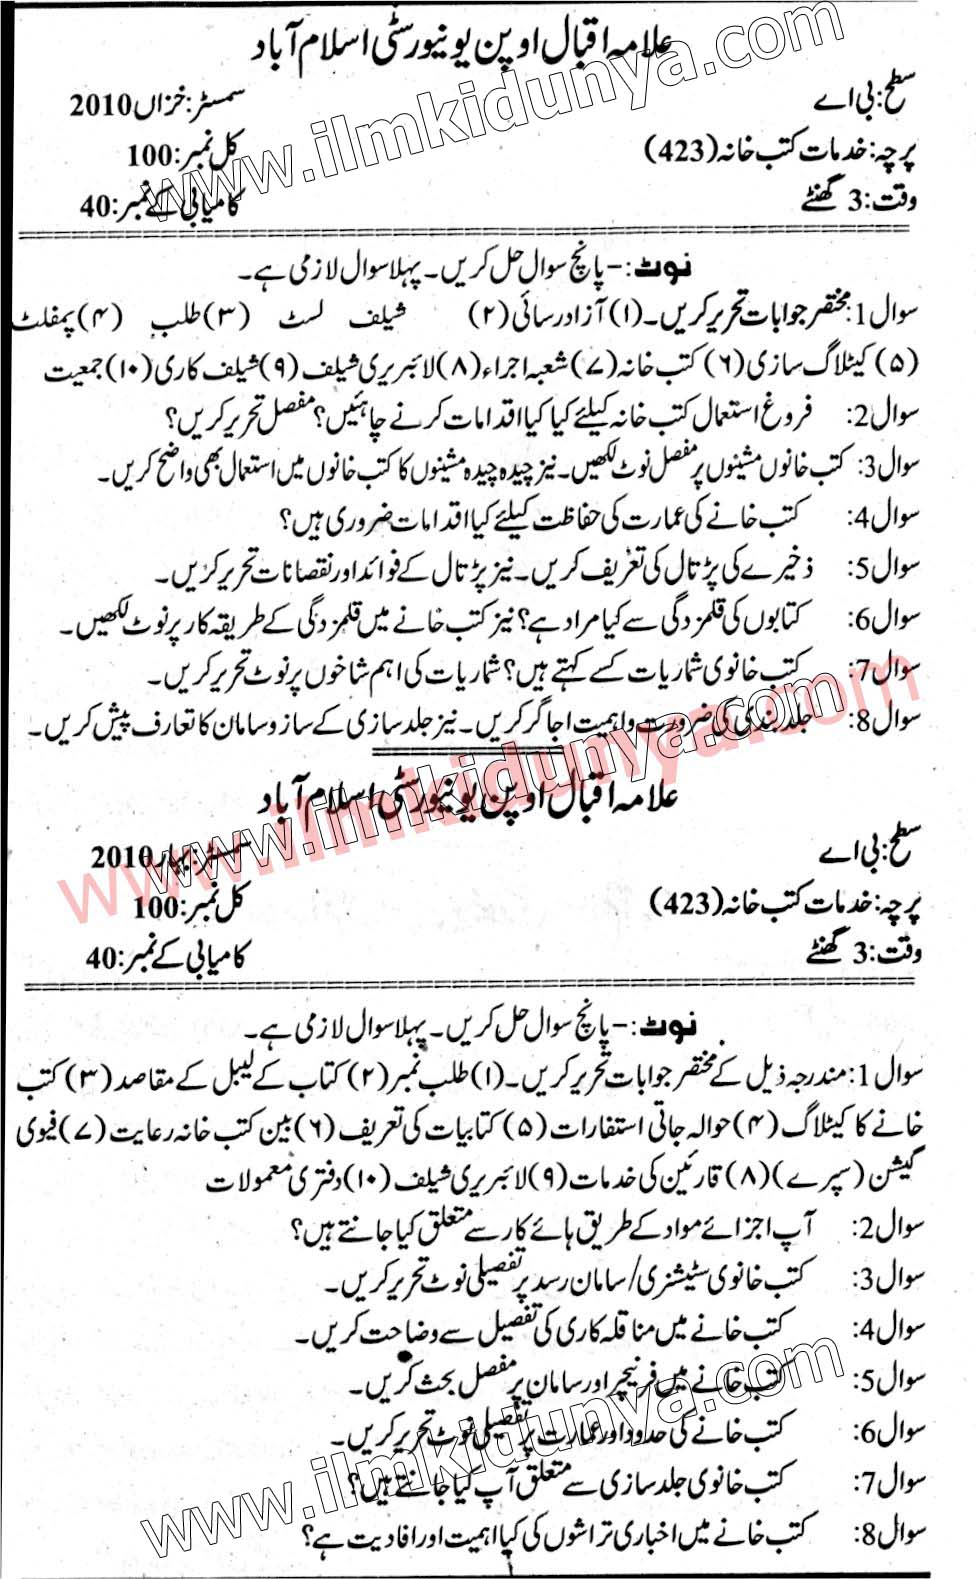 علامہ اقبال اوپن یونیورسٹی اسلام آباد
سطح: بی اے سمسٹر: خزاں 2010
پرچہ: خدمات کتب خانہ (423) کل نمبر: 100
وقت: 3 گھنٹے کامیابی کے نمبر: 40
نوٹ:- پانچ سوال حل کریں۔ پہلا سوال لازمی ہے۔
سوال 1: مختصر جوابات تحریر کریں۔ (۱) آزاد رسائی (۲) شیلف لسٹ (۳) طلب (۴) پمفلٹ
(۵) کیٹلاگ سازی (۶) کتب خانہ (۷) شعبہ اجراء (۸) لائبریری شیلف (۹) شیلف کاری (۱۰) جمعیت
سوال 2: فروغ استعمال کتب خانہ کیلئے کیا کیا اقدامات کرنے چاہئیں؟ مفصل تحریر کریں؟
سوال 3: کتب خانوں مشینوں پر مفصل نوٹ لکھیں۔ نیز چیدہ چیدہ مشینوں کا کتب خانوں میں استعمال بھی واضح کریں۔
سوال 4: کتب خانے کی عمارت کی حفاظت کیلئے کیا اقدامات ضروری ہیں؟
سوال 5: ذخیرے کی پڑتال کی تعریف کریں۔ نیز پڑتال کے فوائد اور نقصانات تحریر کریں۔
سوال 6: کتابوں کی قلمزدگی سے کیا مراد ہے؟ نیز کتب خانے میں قلمزدگی کے طریقہ کار پر نوٹ لکھیں۔
سوال 7: کتب خانوی شماریات کسے کہتے ہیں؟ شماریات کی اہم شاخوں پر نوٹ تحریر کریں۔
سوال 8: جلد بندی کی ضرورت و اہمیت اجاگر کریں۔ نیز جلد سازی کے سازو سامان کا تعارف پیش کریں۔
علامہ اقبال اوپن یونیورسٹی اسلام آباد
سطح: بی اے سمسٹر: بہار 2010
پرچہ: خدمات کتب خانہ (423) کل نمبر: 100
وقت: 3 گھنٹے کامیابی کے نمبر: 40
نوٹ:- پانچ سوال حل کریں۔ پہلا سوال لازمی ہے۔
سوال 1: مندرجہ ذیل کے مختصر جوابات تحریر کریں۔ (۱) طلب نمبر (۲) کتاب کے لیبل کے مقاصد (۳) کتب
خانے کا کیٹلاگ (۴) حوالہ جاتی استفارات (۵) کتابیات کی تعریف (۶) بین کتب خانہ رعایت (۷) فیوی
گیشن (سپرے) (۸) قارئین کی خدمات (۹) لائبریری شیلف (۱۰) دفتری معمولات
سوال 2: آپ اجزائے مواد کے طریق ہائے کار سے متعلق کیا جانتے ہیں؟
سوال 3: کتب خانوی سٹیشنری/سامان رسد پر تفصیلی نوٹ تحریر کریں۔
سوال 4: کتب خانے میں مناقلہ کاری کی تفصیل سے وضاحت کریں۔
سوال 5: کتب خانے میں فرنیچر اور سامان پر مفصل بحث کریں۔
سوال 6: کتب خانے کی حدود اور عمارت پر تفصیلی نوٹ تحریر کریں۔
سوال 7: کتب خانوی جلد سازی سے متعلق آپ کیا جانتے ہیں؟
سوال 8: کتب خانے میں اخباری تراشوں کی کیا اہمیت اور افادیت ہے؟
www.ilmkidunya.com
www.ilmkidunya.com
www.ilmkidunya.com
www.ilmkidunya.com